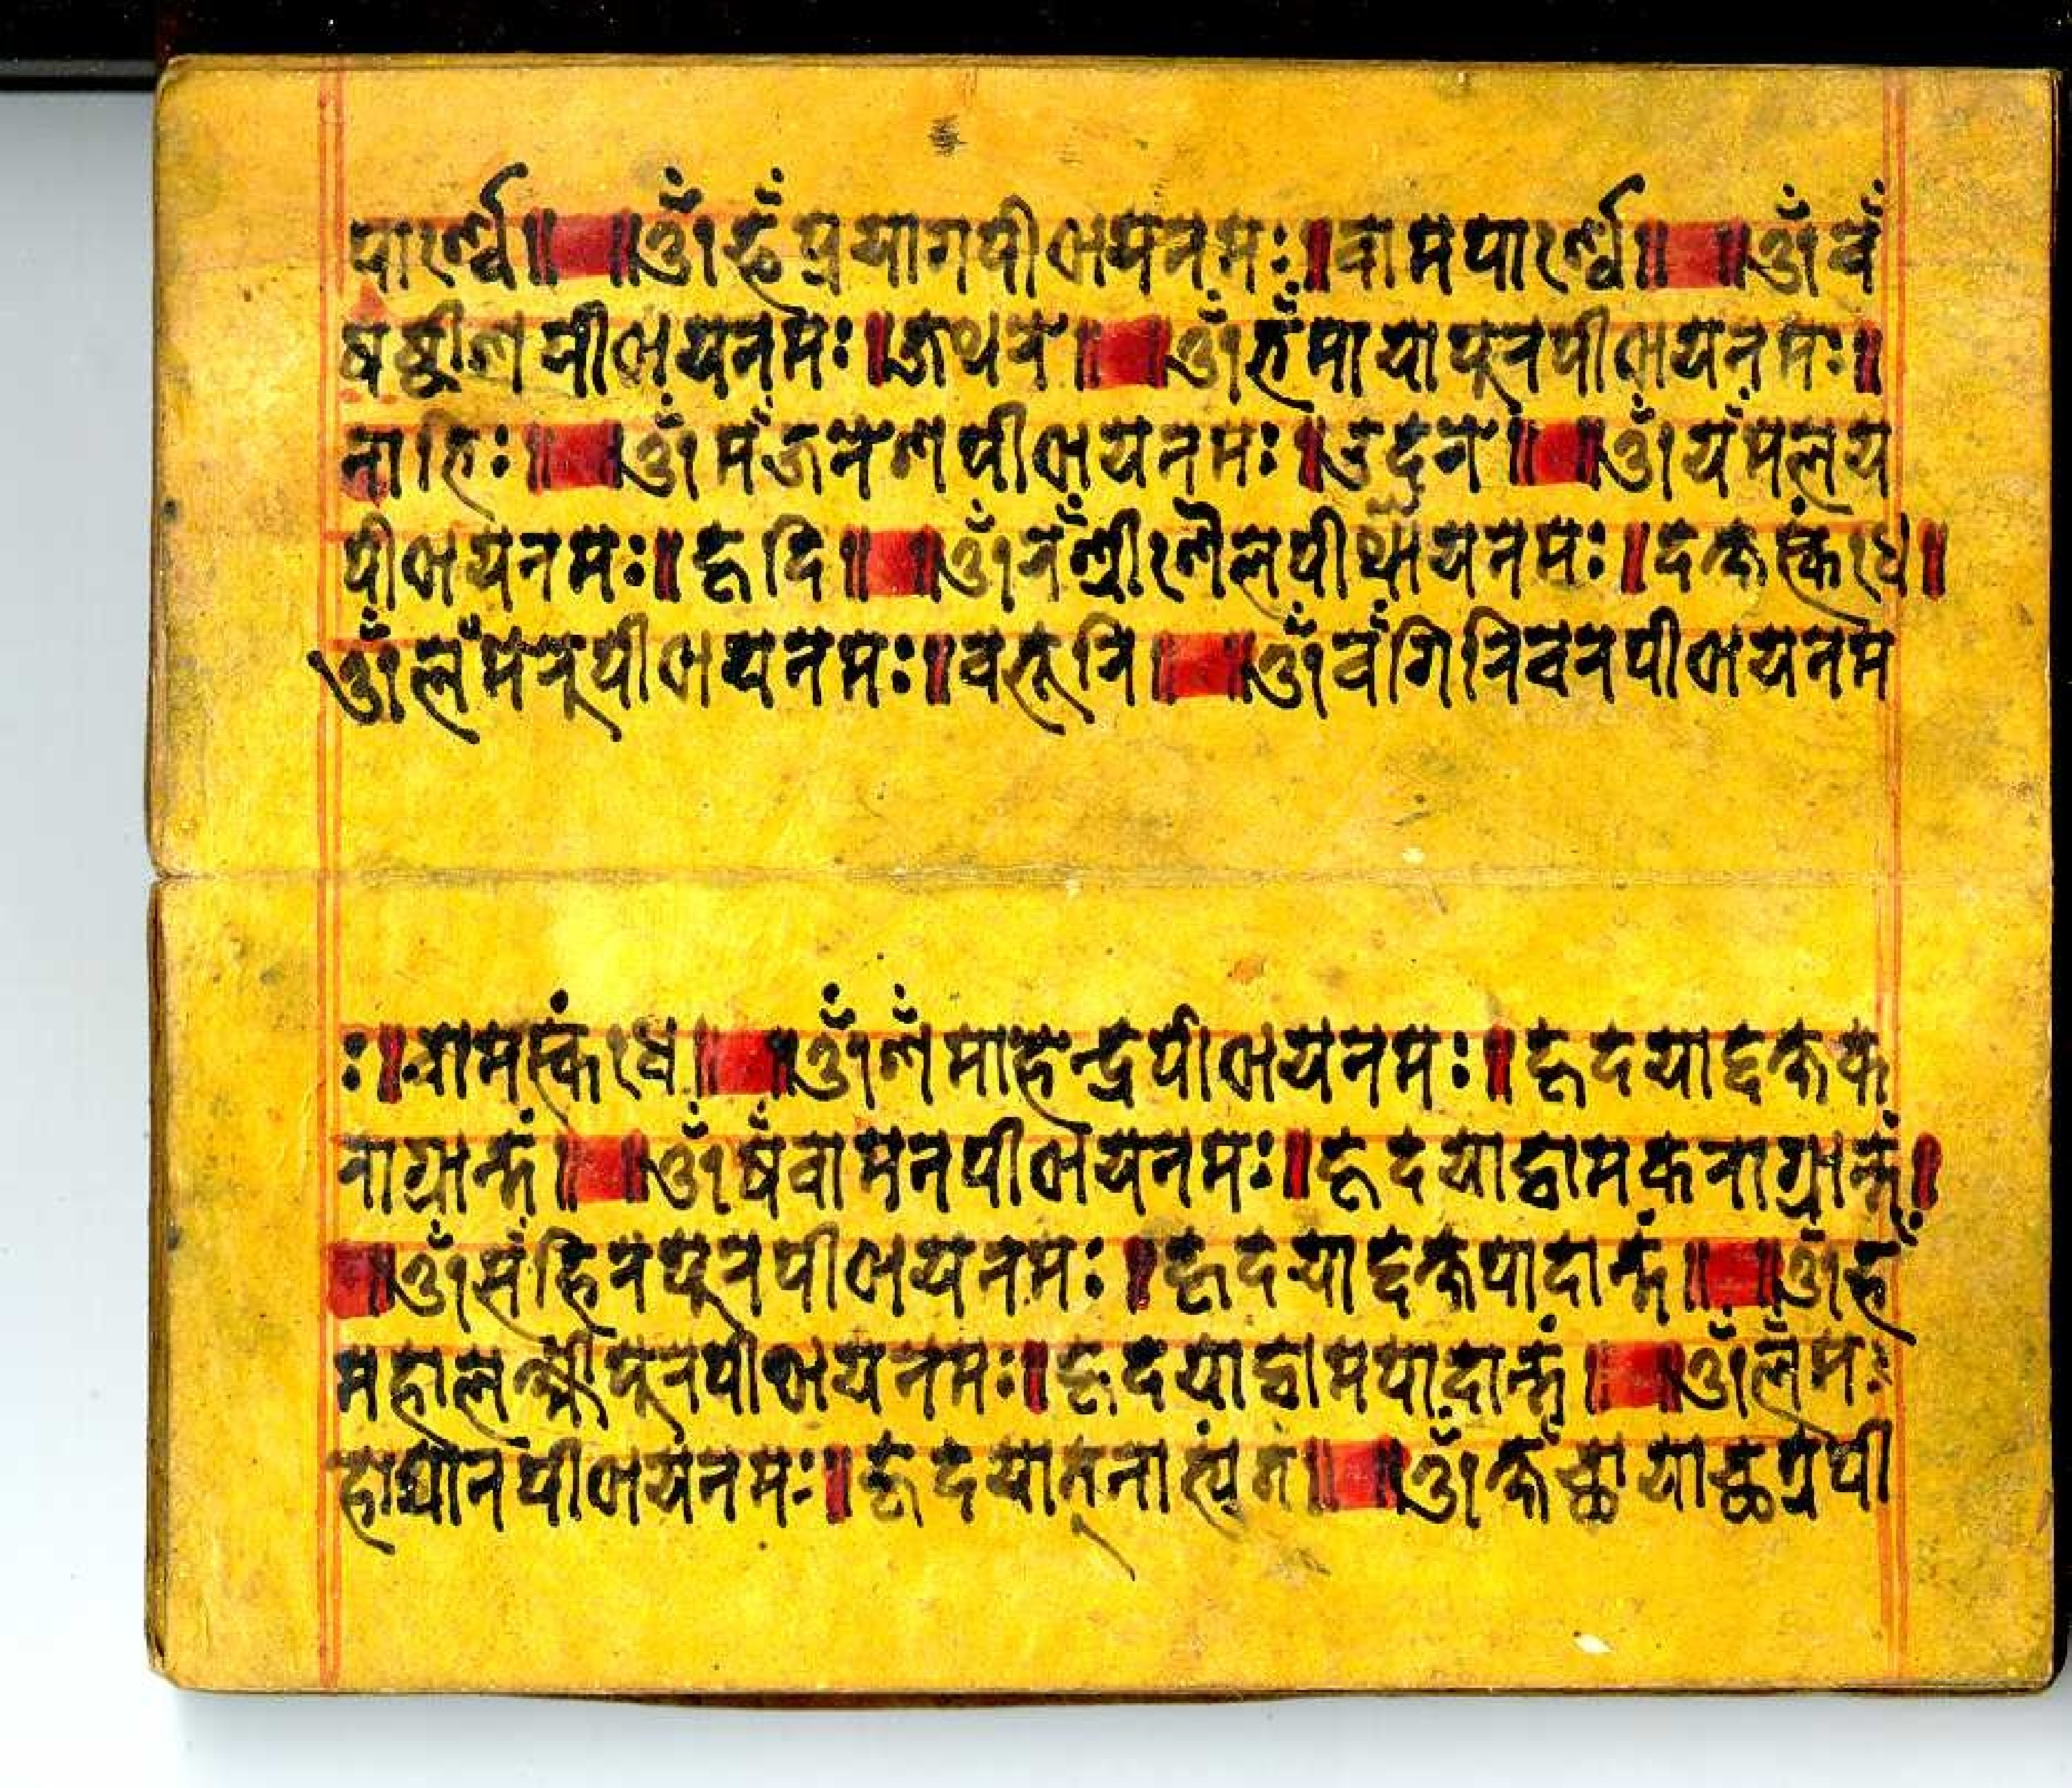 पार्श्व॥ ॥ॐफंप्रयागपीठायनमः॥वामपार्श्व॥ ॥ॐबं
षष्ठीशपीठायनमः॥जठर॥ ॥ॐभंमायापूरपीठायनमः॥
नाभिः॥ ॥ॐमंजलेशपीठायनमः॥उदर॥ ॥ॐयंमलय
पीठायनमः॥हृदि॥ ॥ॐरंश्रीशैलपीठायनमः॥दक्षस्कंध॥
ॐलंमेरूपीठायनमः॥ ॥ॐवंगिरिवरपीठायनम
ः॥वामस्कंध॥ ॥ॐशंमाहेन्द्रपीठायनमः॥हृदयाद्दक्षक
राग्रान्तं॥ ॥ॐषंवामनपीठायनमः॥हृदयाद्वामकराग्रान्तं॥
॥ॐसंहिरपूरपीठायनमः॥हृदयाद्दक्षपादान्तं॥ ॥ॐहं
महालक्ष्मीपूरपीठायनमः॥हृदयाद्वामपादान्तं॥ ॥ॐलंम
हापीठायनमः॥ ॥ॐक्षंछायाछत्रपी